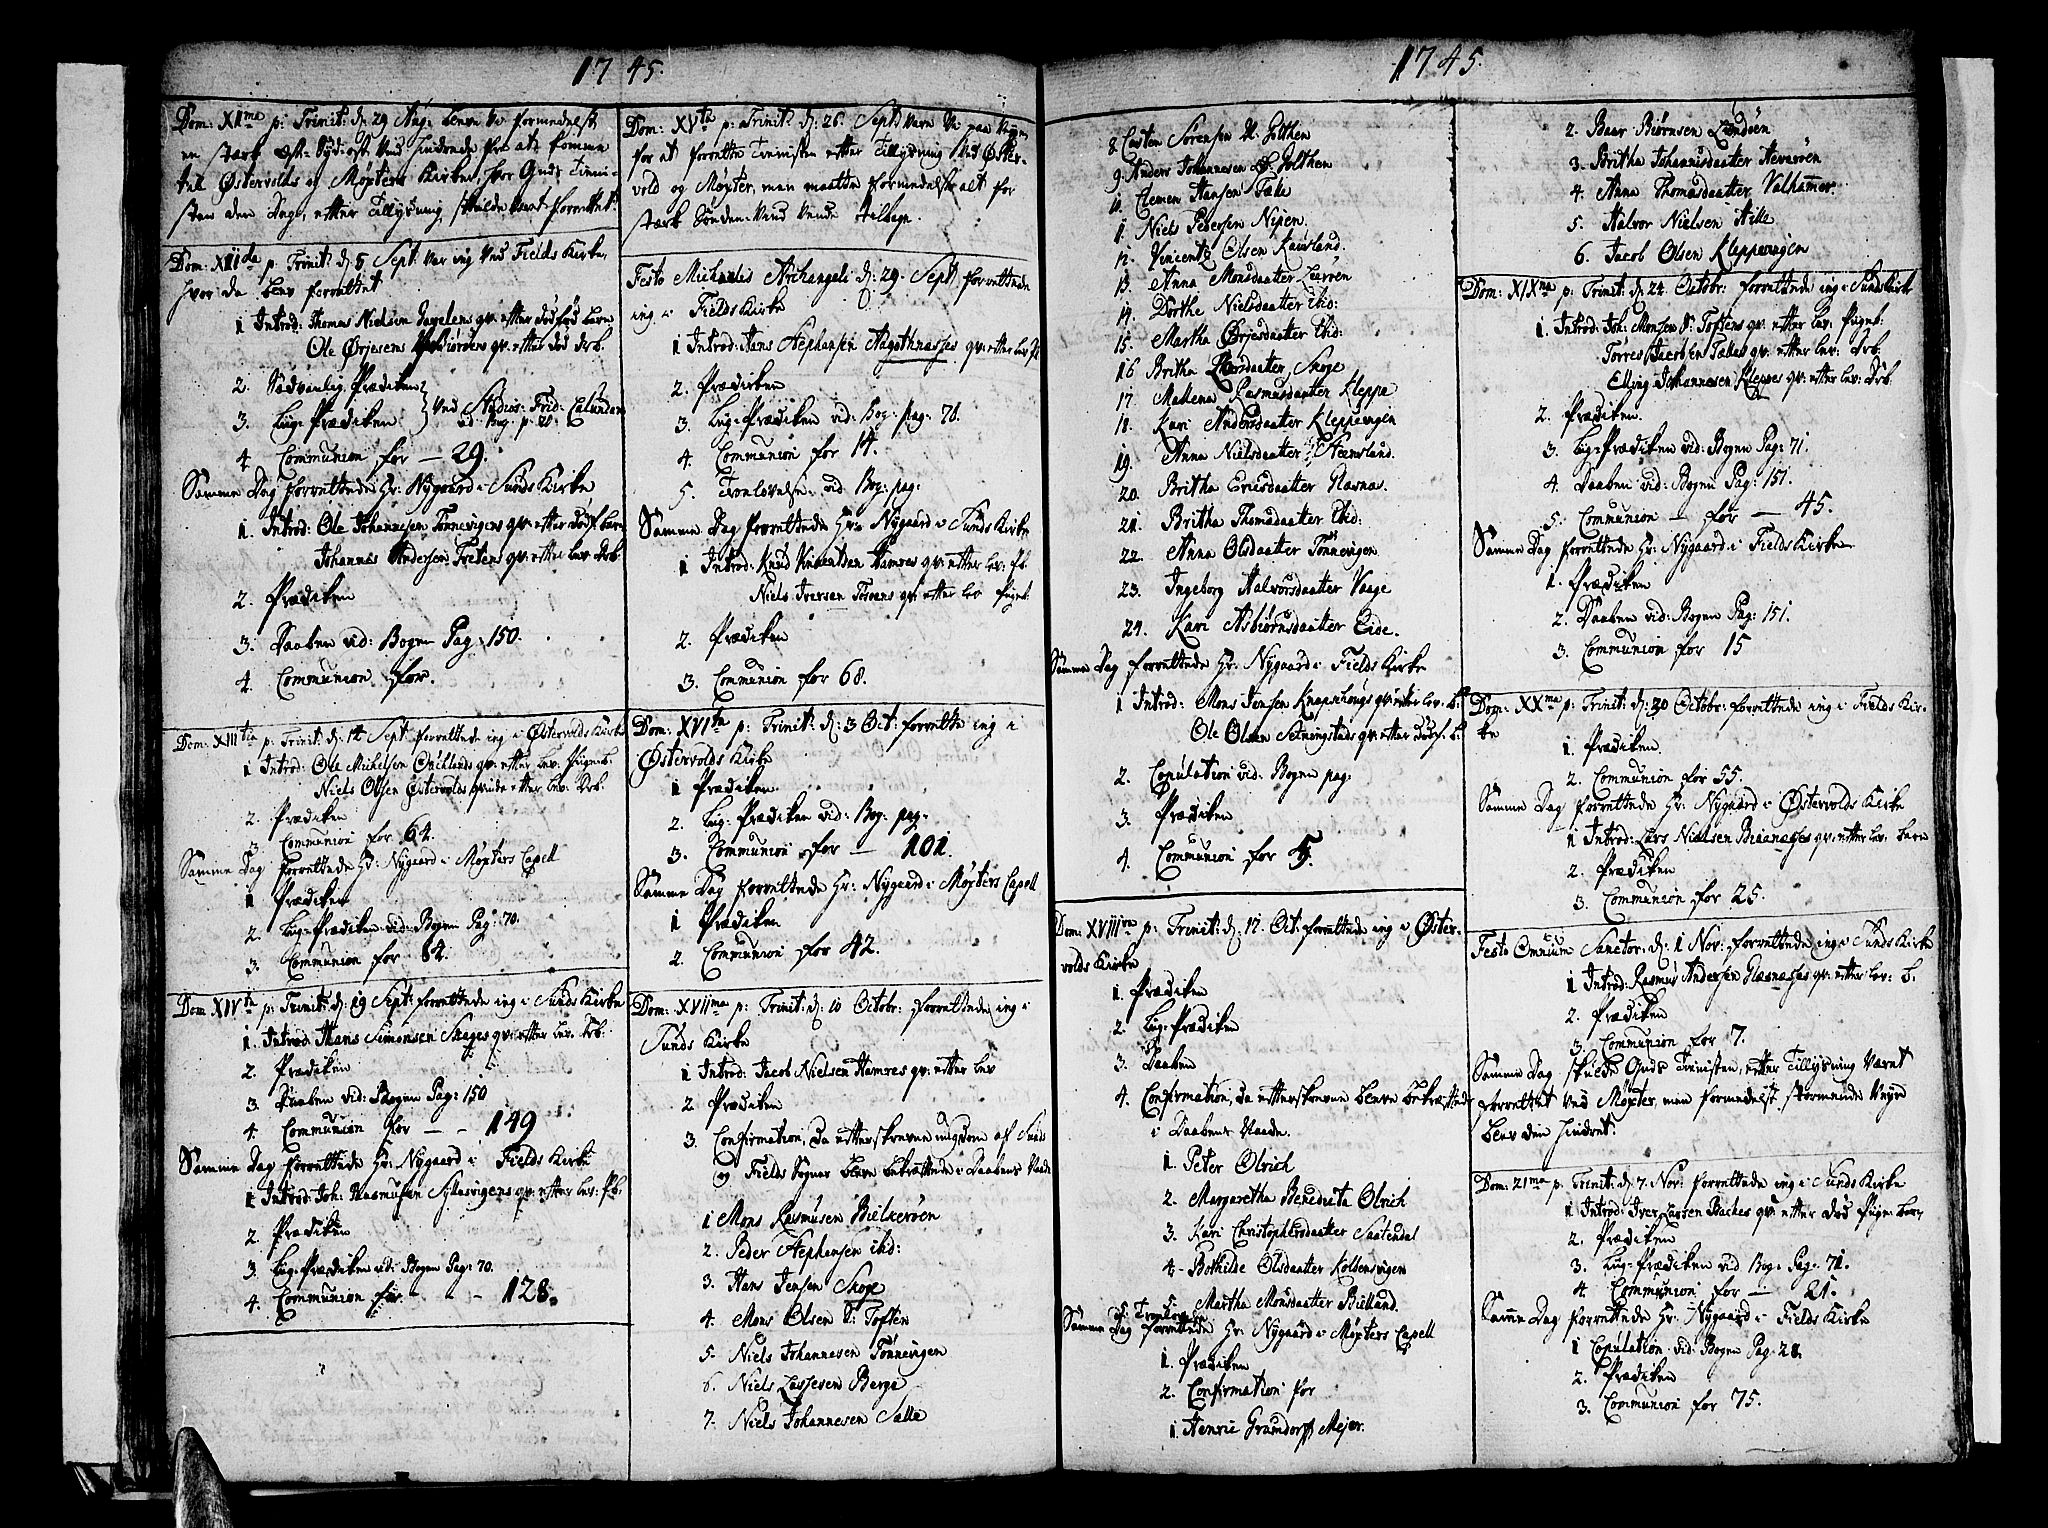 1745.
Dom: XIIma p: Trinit: d: 29 Aug: blev vi formedelst
en stærk Ost-Sydost Vind hindrede fra at komme
til Østervolds og Møxters Kirke, hvor Guds Tieni-
sten den Dag, efter Tillysning, skulde vært forrettet.
Dom: XIIda p. Trinit: d: 5 Sept var ieg ved Fields Kirke,
hvor da blev forrettet
1 Introd: Thomas Nielsen qv: efter dødfød barn
Ole Ørjesens qv: efter død drb.
2. Sædvanlig Prædiken
3. Lig-Prædiken } ved Studios: Frid: Calundan
vid: Bog. p. 70.
4. Communion for — 29.
Samme Dag forrettede Hr: Nygaard i Sunds Kirke
1. Introd: Ole Johannesen Tønnevigens qv: efter dødf. barn
Johannes Andersen Tvetens qv: efter lev. Drb
2. Prædiken
3. Daaben vid: Bogen Pag. 150.
4. Communion for.
Dom: XIIItia p: Trinit: d: 12 Sept forrettede ieg i Østervolds Kirke
1 Introd: Ole Michelsen qv: efter lev. Pige-b.
Niels Olsen Østervolds qvinde efter lev. Drb.
2. Prædiken
3 Communion for 64.
Samme Dag forrettede Hr: Nygaard i Møxters Capell
1 Prædiken
2. Lig-Prædiken vid: Bogen Pag: 70.
3. Communion for 84.
Dom: XIVta p: Trinit: d: 19 Sept: forrettede ieg i Sunds Kirke
1. Introd: Hans Simonsen Skages qv: efter lev. Drb:
2. Prædiken
3. Daaben vid: Bogen Pag: 150
4. Communion for — - 149
Samme Dag forrettede Hr: Nygaard i Fields Kirke
1 Introd: Joh: Rasmusen qv: efter lev: Pb.
2. Prædiken
3. Lig-Prædiken vid: Bogen Pag: 70.
4. Communion for - - 128.
Dom: XVta p: Trinit: d: 26. Sept: vare vi paa Veyen
for at forrette Tienisten efter Tillysning ved Øster-
vold og Møxter, men maatte formedelst alt for
stærk Sønden-Vind vende tilbage.
Festo Michaelis Archangeli d: 29. Sept: forrettede
ieg i Fields Kirke
1 Introd: Hans Stephansen Aagothnæsses qv: efter lev
2. Prædiken
3. Lig-Prædiken vid: Bog. pag: 71.
4. Communion for 14.
5. Trolovelse vid Bog: pag:
Samme Dag forrettede Hr: Nygaard i Sunds Kirke
1 Introd: Knud Knudsen Hamres qv: efter lev: Pb.
Niels Iversen qv: efter lev Pigeb:
2. Prædiken
3. Communion for 68.
Dom: XVIta p: Trinit: d: 3 Oct: forrettede ieg i
Østervolds Kirke
1 Prædiken
2. Lig-Prædiken vid: Bog: pag:
3. Communion for — 101.
Samme Dag forrettede Hr: Nygaard i Møxters Capell
1 Prædiken
2. Communion for 42.
Dom: XVIIma p: Trinit: d: 10 Octobr: forrettede ieg i
Sunds Kirke
1 Introd: Jacob Nielsen Hamres qv: efter lev
2 Prædiken
3. Confirmation, da efterskrevne ungdom af Sunds
og Fields Sogner bleve bekræftede i Daabens Naade
1 Mons Rasmusen Bielkerøen
2. Peder Stephansen ibid:
3. Hans Jensen Skoge
4. Mons Olsen S: Toften
5. Niels Johannesen Tønnevigen
6. Niels Lassesen Berge
7. Niels Johannesen Salle
1745.
8. Casten Sørensen N. Golthen
9. Anders Johannesen Golthen
10. Clemen Hansen Telle
11. Niels Pedersen Nipen
12. Vincentz Olsen Kausland.
13. Anna Monsdaatter Lerøen
14. Dorthe Nielsdaatter ibid:
15. Martha Ørjesdaatter ibid:
16 Britha Skoge
17. Mallena Rasmusdaatter Kleppe
18. Kari Andersdaatter Kleppevigen
19. Anna Nielsdaatter Steensland.
20. Britha Ericsdaatter Glesnæs.
21. Britha Thomasdaatter ibid:
22. Anna Olsdaatter Tønnevigen
23. Ingeborg Halvorsdaatter Vaage
24. Kari Asbiørnsdaatter Eide.
Samme Dag forrettede Hr: Nygaard i Fields Kirke
1 Introd: Mons Jensen qv: efter lev.
Ole Olsen qv: efter dødf. b.
2. Copulation vid: Bogen pag:
3. Prædiken
4. Communion for 5.
Dom: XVIIIva p: Trinit: d: 17. Oct: forrettede ieg i Øster-
volds Kirke
1. Prædiken
2. Lig-Prædiken
3. Daaben
4. Confirmation, da efterskrevne bleve bekræftede
i Daabens Naade.
1. Peter Olrich
2. Margaretha Benedicta Olrich
3. Kari Christophersdaatter Sautendal
4. Bothilde Olsdaatter Kolbensvigen
5. Martha Monsdaatter Bielland.
5. Trolovelse
Samme Dag forrettede Hr: Nygaard i Møxters Capell
1. Prædiken
2. Confirmation for
1. Henric Gramdorff Mejer.
2. Baar Biørnsen Lundøen
3. Britha Johannisdaatter Hevrøen
4. Anna Thomasdaatter Valhammer
5. Halvor Nielsen Hille
6. Jacob Olsen Kleppevigen
Dom: XIXna p: Trinit: d: 24. Octobr: forrettede ieg i Sunds Kirke
1. Introd: Joh: Monsen S: Toftens qv: efter lev: Pigeb:
Torres Jacobsen Telles qv: efter lev: Drb.
Elling Johannesen Kleppes qv: efter lev: Drb.
2. Prædiken.
3. Lig-Prædiken vid: Bogen Pag: 71.
4. Daaben vid: Bogen Pag: 151.
5. Communion — for — 45.
Samme Dag forrettede Hr: Nygaard i Fields Kirke
1. Prædiken
2. Daaben vid: Bogen Pag: 151.
3. Communion for 15
Dom: XXma p: Trinit: d: 30 Octobr: forrettede ieg i Fields Kir-
ke
1. Prædiken.
2. Communion for 55.
Samme Dag forrettede Hr: Nygaard i Østervolds Kirke
1 Introd: Lars Nielsen qv: efter lev: barn
2. Prædiken
3. Communion for 25.
Festo Omnium Sanctor: d: 1 Nov: forrettede ieg i Sunds Kirke
1 Introd: Rasmus Andersen Glesnæsses qv: efter lev: b.
2. Prædiken
3. Communion for 7.
Samme Dag skulde Guds Tienisten, efter Tillysning været
forrettet ved Møxter, men formedelst stormende Veyr
blev den hindret.
Dom: 21ma p: Trinit: d: 7. Nov: forrettede ieg i Sunds Kirke
1 Introd: Iver Larsen Backes qv: efter død Pige-barn
2. Prædiken
3. Lig-Prædiken vid Bog: Pag: 71.
4. Communion for — 21.
Samme Dag forrettede Hr: Nygaard i Fields Kirke
1 Copulation vid: Bogen Pag: 28.
2. Prædiken
3. Communion for 75.